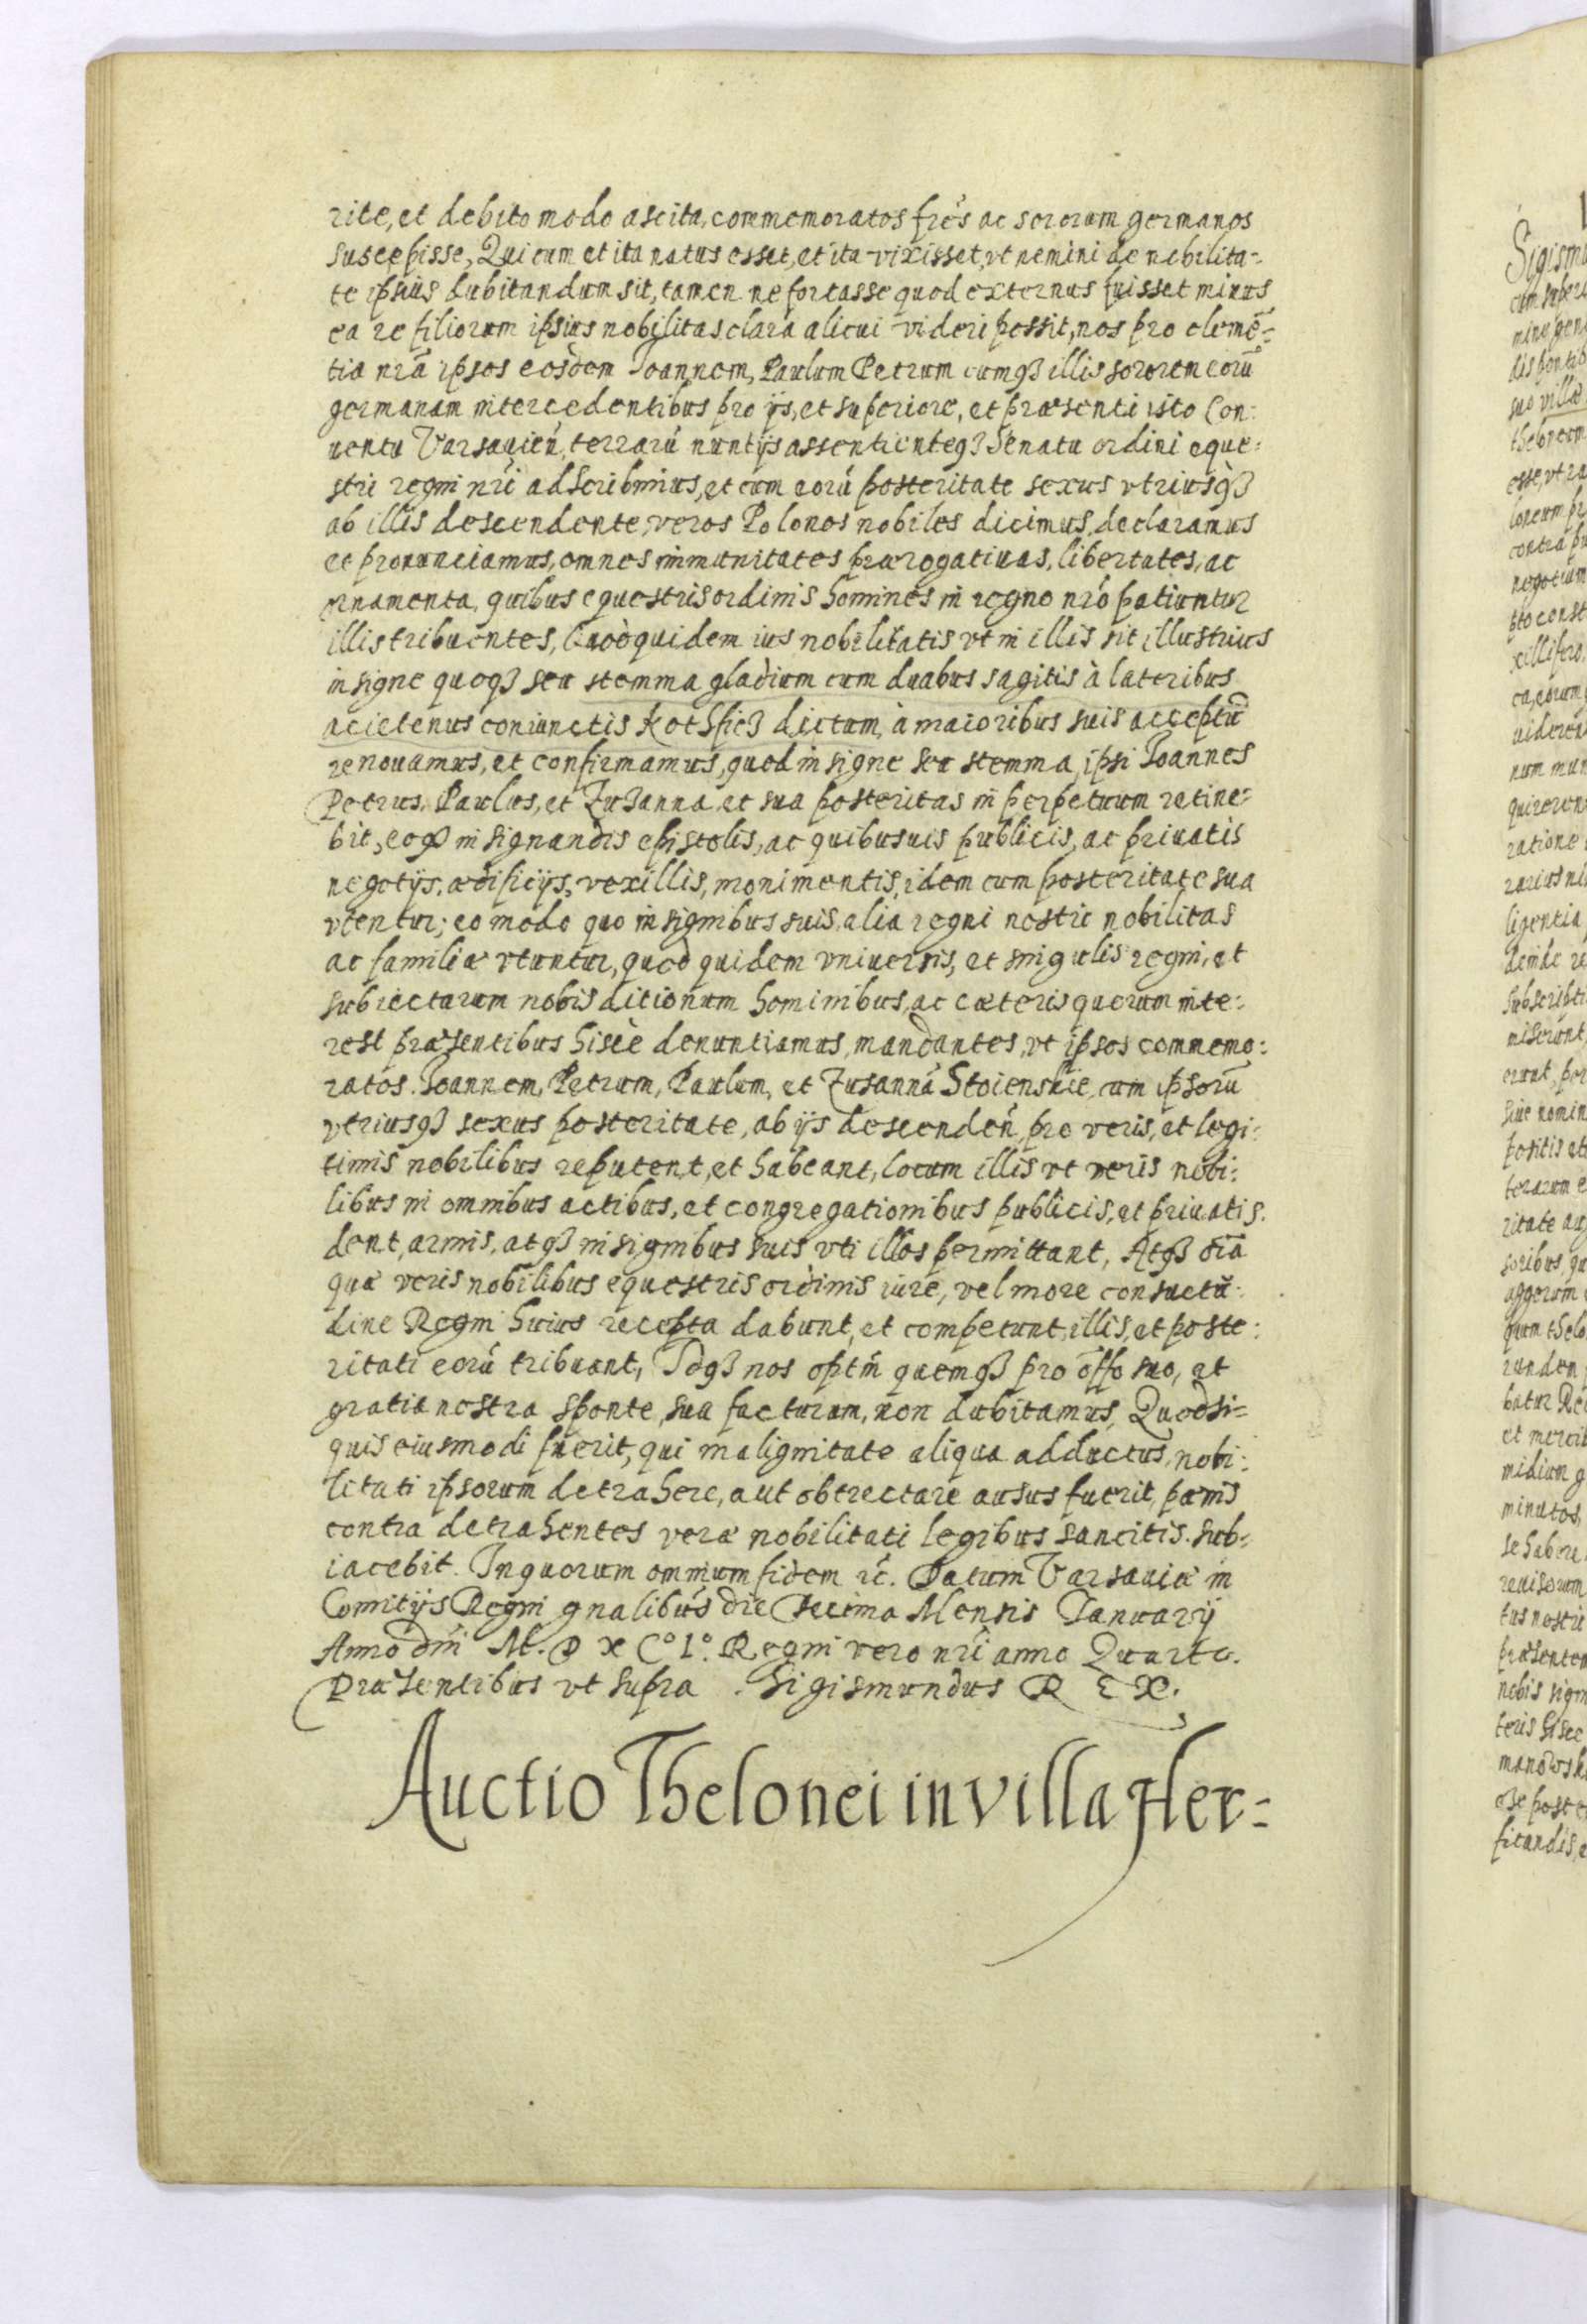 rite, et debito modo ascita, commemoratos frēs ac sororum germanos
suscepisse, Qui cum et ita natus esset, et ita vixisset, vt nemini de nobilita-
te ipsius dubitandum sit, tamen ne fortasse quod externus fuisset minus
ea re filiorum ipsius nobilitas clara alicui videri possit, nos pro clemē-
tia nrā ipsos eosdem Ioannem, Paulum Petrum cumqꝫ illis sororem eorū
germanam intercedentibus pro ijs, et superiore, et præsenti isto Con-
uentu Varsauień, terrarū nuntijs assentienteqꝫ Senatu ordini eque-
stri regni nrī adscribimus, et cum eorū posteritate sexus vtriusqꝫ
ab illis descendente, veros Polonos nobiles dicimus, declaramus
et pronunciamus, omnes immunitates prærogatiuas, libertates, ac
ornamenta, quibus equestris ordinis homines in regno nrō patiuntur
illis tribuentes, Quod quidem ius nobilitatis vt in illis sit illustrius
insigne quoqꝫ seu stemma gladium cum duabus sagitis à lateribus
acietenus coniunctis Kothficz dictum, à maioribus suis acceptū
renouamus, et confirmamus, quod insigne seu stemma, ipsi Ioannes
Petrus, Paulus, et Zuzanna et sua posteritas in perpetuum retine-
bit, eoqꝫ in signandis epistolis, ac quibusuis publicis, ac priuatis
negotijs, ædificijs, vexillis, monimentis, idem cum posteritate sua
vtentur; eo modo quo insignibus suis, alia regni nostri nobilitas
ac familiæ vtuntur, quod quidem vniuersis, et singulis regni, et
subiectarum nobis ditionum hominibus, ac cæteris quorum inte-
rest præsentibus hisce denuntiamus, mandantes, vt ipsos commemo-
ratos. Ioannem, Petrum, Paulum, et Zusannā Stoienskie, cum ipsorū
vtriusqꝫ sexus posteritate, ab ijs descendeń, pro veris, et legi-
timis nobilibus reputent, et habeant, locum illis vt veris nobi-
libus in omnibus actibus, et congregationibus publicis, et priuatis.
dent, armis, atqꝫ insignibus suis vti illos permittant, Atqꝫ oīa
quæ veris nobilibus equestris ordinis iure, vel more consuetu-
dine Regni huius recepta dabunt, et competunt, illis, et poste-
ritati eorū tribuant, Idqꝫ nos optḿ quemqꝫ pro offo suo, et
gratia nostra sponte, sua facturum, non dubitamus, Quodsi-
quis eiusmodi fuerit, qui malignitate aliqua adductus, nobi-
litati ipsorum detrahere, aut obtrectare ausus fuerit, pænis
contra detrahentes veræ nobilitati legibus sancitis. sub-
iacebit. In quorum omnium fidem rc̄. Datum Varsauiæ in
Comitijs Regni gnalibus die Decima Mensis Ianuarij
Anno dnī M. D XC° I°. Regni vero nrī anno Quarto.
Præsentibus vt supra. Sigismundus REX.
Auctio Thelonei in villa Her-